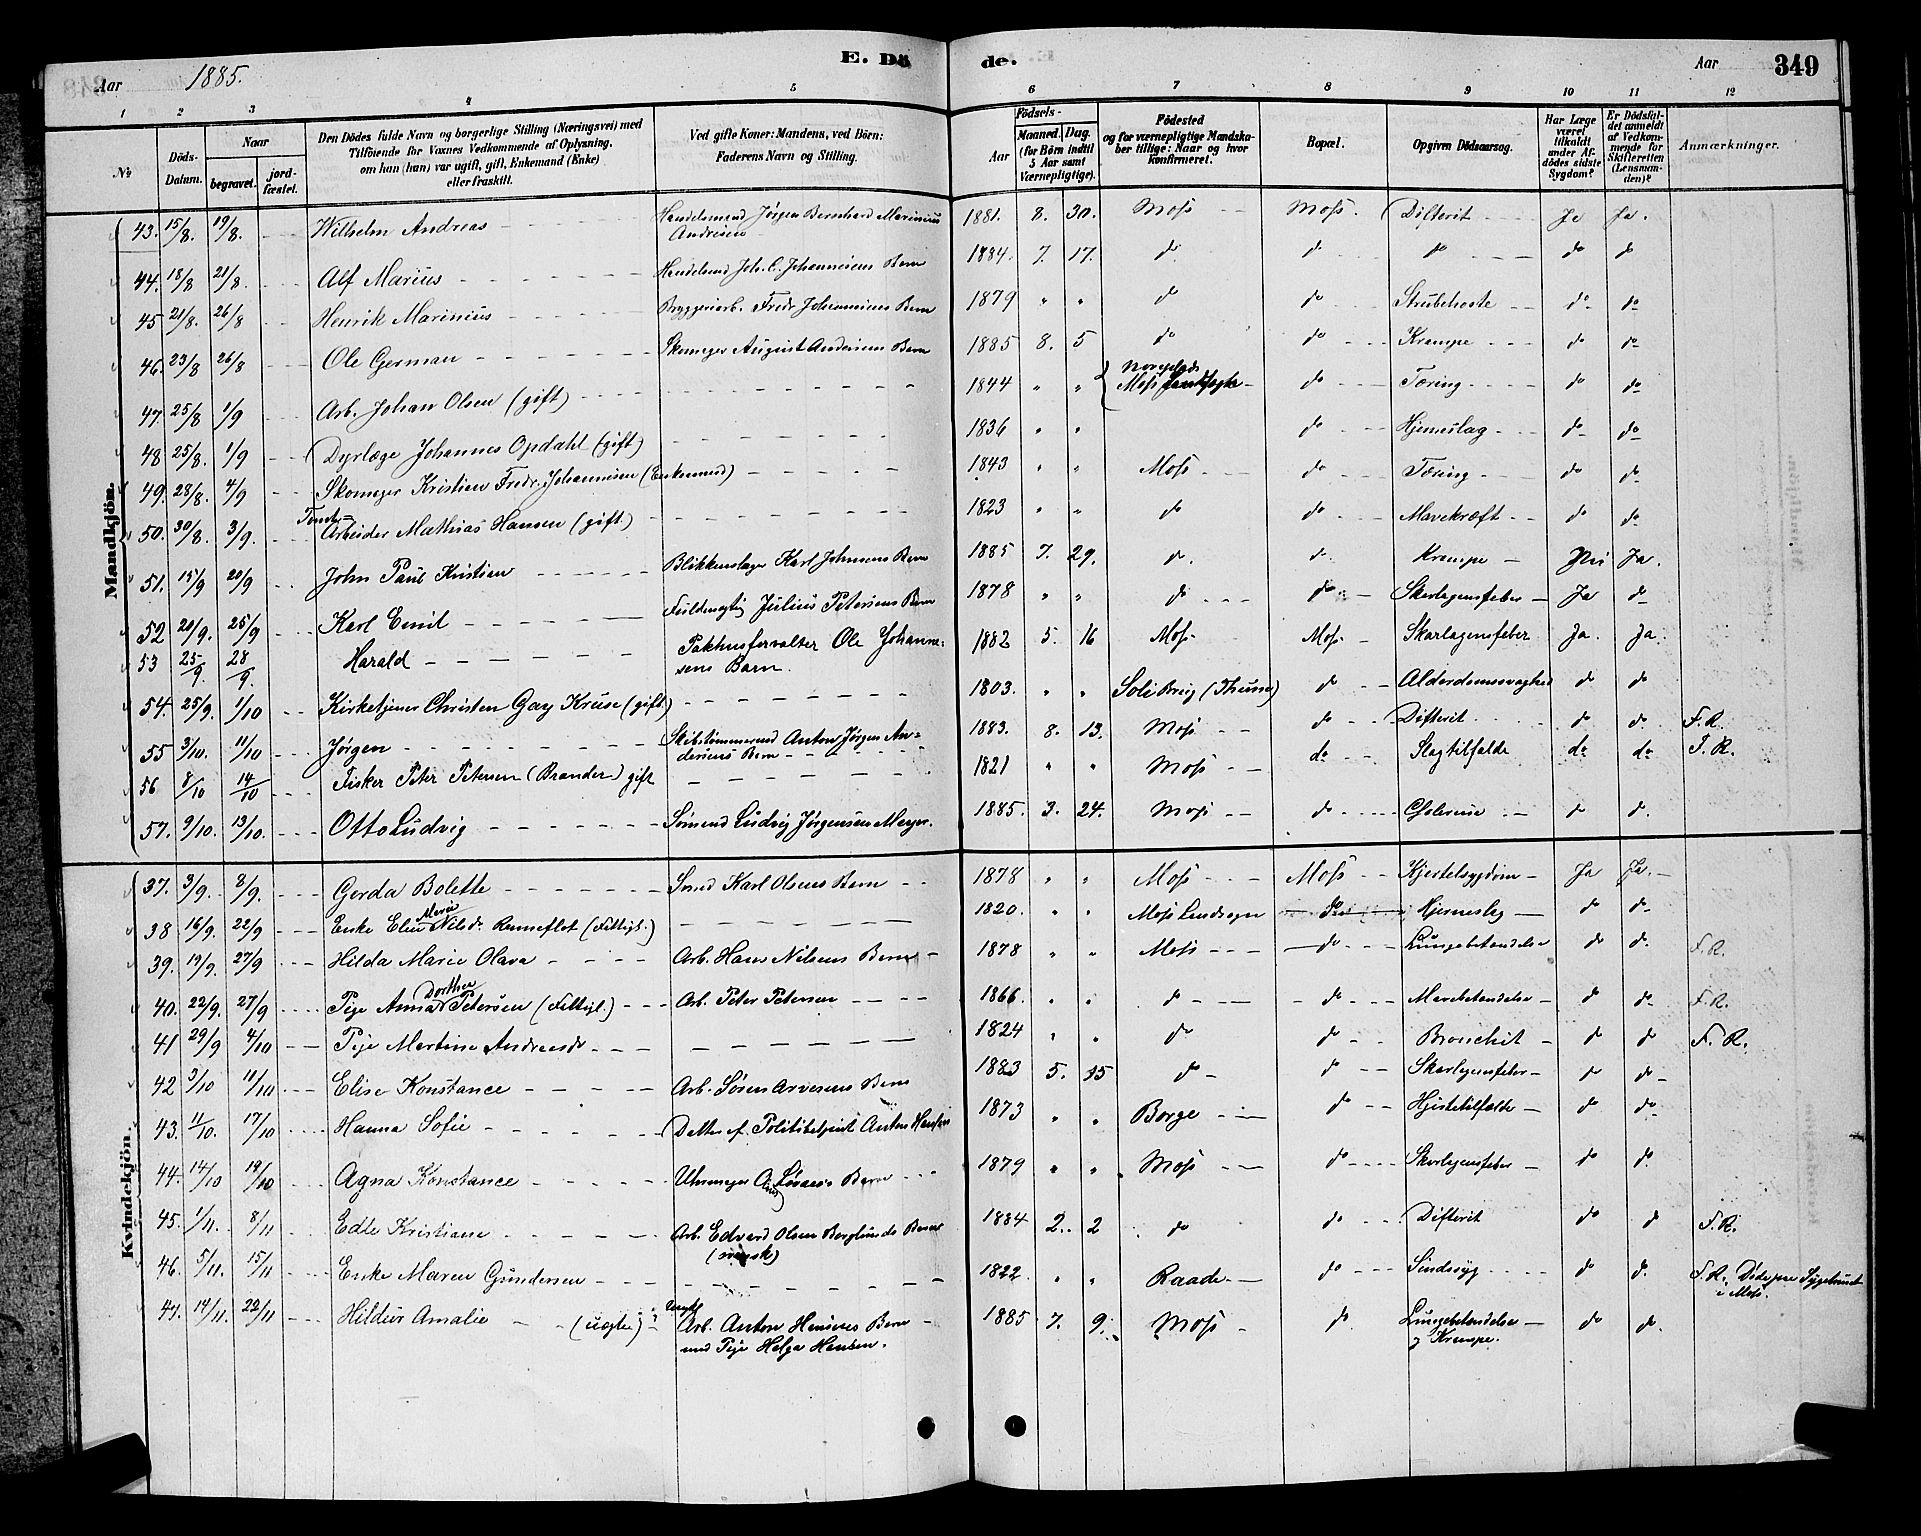 Aar 1885. E. Dö de. Aar 349
1 2 3 4 5 6 7 8 9 10 11 12
№ Döds-Datum. Naar begravet. jordfæstet. Den Dödes fulde Navn og borgerlige Stilling (Næringsvei) med Tilföiende for Voxnes Vedkommende af Oplysning, om han (hun) var ugift, gift, Enkemand (Enke) eller fraskilt. Ved gifte Koner: Mandens, ved Börn: Faderens Navn og Stilling. Födsels- Aar Maaned. Dag. (for Börn indtil 5 Aar samt Værnepligtige). Födested og for værnepligtige Mandskaber tillige: Naar og hvor konfirmeret. Bopæl. Opgiven Dödsaarsag. Har Læge været tilkaldt under Afdödes sidste Sygdom? Er Dödsfaldet anmeldt af Vedkommende for Skifteretten (Lensmanden)? Anmærkninger.
Mandkjön.
43. 15/8. 19/8. Wilhelm Andreas Handelsmand Jørgen Bernhard Marinius Andresen 1881. 8. 30. Moss Moss. Difterit Ja Ja.
44. 18/8 21/8. Alf Marius Handelsmd Joh. C. Johannesens Barn 1884. 7. 17. do do do do do
45 21/8. 26/8 Henrik Marinius Bryggeriarb. Fredr. Johannesens Barn 1879 " " do do Strubehoste do do
46. 23/8 26/8 Ole German Skomager August Andersens Barn 1885 8. 5 do do Krampe do do
47. 25/8 1/9 Arb. Johan Olsen (gift) 1844 " " Moss Landsogn do Tæring do do
48 25/8. 1/9 Dyrlæge Johannes Opdahl (gift) 1836 " " do Hjerneslag do do
49. 28/8. 4/9 Skomager Kristian Fredr. Johannesen (Enkemand) 1843 " " Moss do Tæring do do
50. 30/8. 3/9. Tomte-Arbeider Mathias Hansen (gift) 1823 " " do do Mavekræft do do
51. 15/9 20/9 John Paul Kristian Blikkenslager Karl Johnsens Barn 1885 7. 29. do. do Krampe Nei Ja.
52 20/9. 25/9 Karl Emil Fuldmægtig Julius Petersens Barn 1878 " " do do Skarlagensfeber Ja do
53 25/9. 28/9. Harald Pakhusforvalter Ole Johannesens Barn. 1882 5. 16 Moss Moss Skarlagensfeber Ja. Ja.
54. 25/9. 1/10 Kirketjener Christen Gay Kruse (gift) 1803. " " Soli Brug (Thune) do Alderdomssvaghed do do
55 3/10. 11/10 Jørgen Skibstømmermd Anton Jørgen Andersens Barn 1883. 8. 13. Moss do Difterit do do. F. R.
56 8/10 14/10 Fisker Peter Petersen (Brander) gift 1821 " " Moss do Slagtilfælde do do F. R.
57. 9/10. 13/10. Otto Ludvig Sömand Ludvig Jørgensen Meyer. 1885. 3. 24. Moss do Cholerine do do.
Kvindekjön.
37. 3/9. 8/9. Gerda Bolette Smed Karl Olsens Barn 1878 " " Moss Moss Kjertelsygdom Ja Ja.
38 16/9. 22/9 Enke Elen Marie Nilsdr. Renneflot (Fattigl.) 1820. " " Moss Landsogn Hjerneslag do do
39. 19/9. 27/9 Hilda Marie Olava Arb. Hans Nilsens Barn 1878 " " Moss do Lungebetændelse do do. F. R.
40. 22/9. 27/9 Pige Anna Dorthea Petersen (Fattigl.) Arb. Peter Petersen 1866. " " do do Mavebetændelse do do F. R.
41 29/9 4/10 Pige Martine Andreasdr. 1824 " " do do Bronchit do do F. R.
42 3/10 11/10 Elise Konstance Arb. Sören Arvesens Barn 1883 5. 15 do do Skarlagensfeber do do
43. 11/10. 17/10 Hanna Sofie Datter af Politibetjent Anton Hansen 1873 " " Borge do Hjertetilfælde do do
44. 14/10 19/10 Agna Konstance Uhrmager Barn 1879 " " Moss do Skarlagensfeber do do.
45. 1/11. 8/11 Edle Kristiane Arb. Edvard Olsen Berglunds Barn (svensk) 1884 2. 2 do do Difterit do do F. R.
46. 5/11. 15/11 Enke Maren Gundersen 1822 " " Raade do Sindssyg do do. F. R. Døde paa Sygehuset i Moss.
47. 14/11. 22/11 Hildur Amalie (uægte) Arb. Anton Hansens Barn med Pige Helga Hansen. 1885 7. 9. Moss do Lungebetændelse og Krampe. do do.